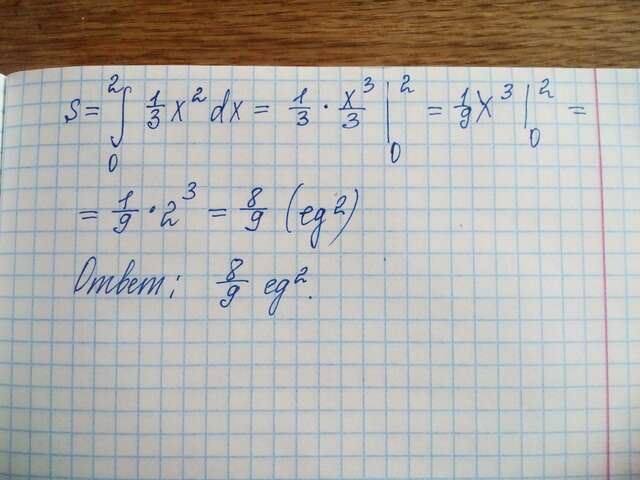 S = ∫₀² 1/3 x² dx = 1/3 · x³/3 |₀² = 1/9 x³ |₀² =
= 1/9 · 2³ = 8/9 (ед²)
Ответ: 8/9 ед².